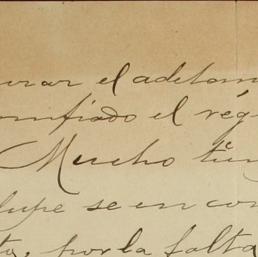 urar el adelan
onfiado el rég
Mucho tien
lupe se en con
ta, por la falta